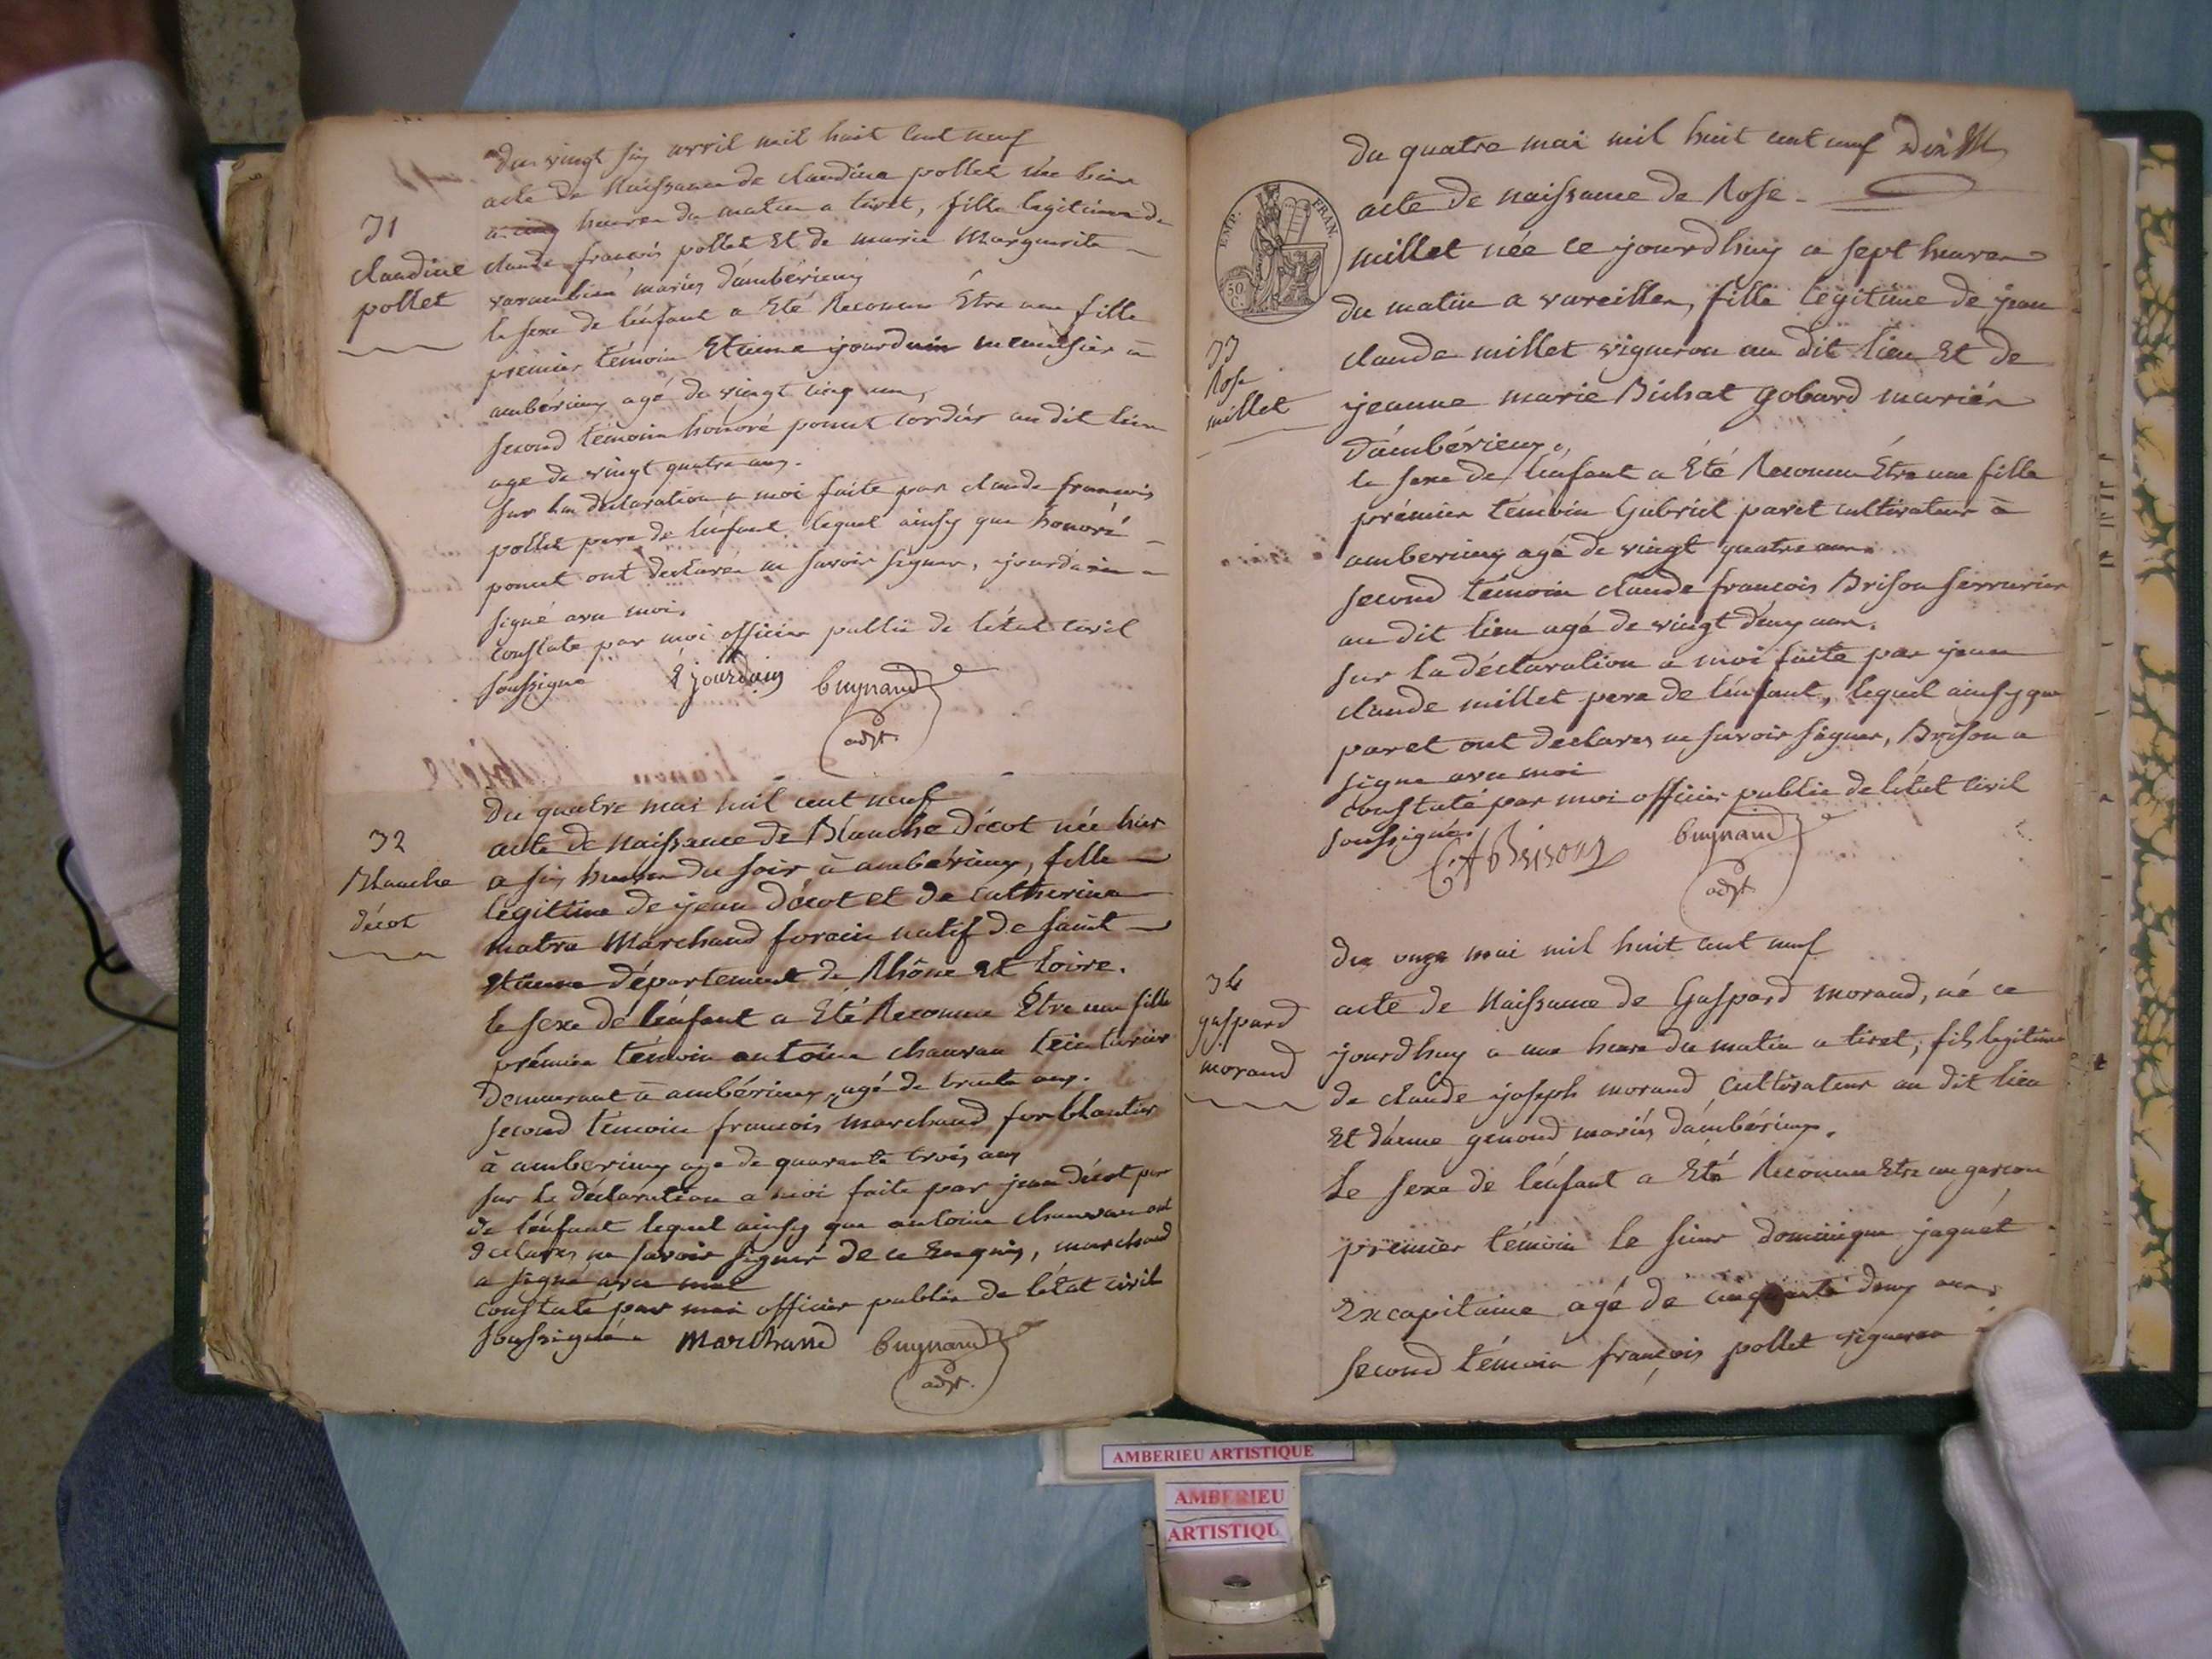 du vingt six avril mil huit cent neuf
acte de Naissance de claudine pollet née hier
a cinq heures du matin a tiret, fille legitime de
claude françois pollet Et de marie Marguerite
mariés d'ambérieux
le sexe de l'enfant a Eté Reconnu Etre une fille
premier témoin Etienne jourdain menuisier à
ambérieux agé de vingt cinq ans,
second témoin honoré ponut cordier au dit lieu
age de vingt quatre ans.
sur la declaration a moi faite par claude françois
pollet pere de l'enfant lequel ainsy que honoré
ponut ont declarés ne savoir signer, jourdain a
signé avec moi.
constaté par moi officier public de l'état civil
soussigné
E jourdain
Buynand
adjt.
31
claudine
pollet
du quatre mai mil cent neuf
acte de Naissance de Blanche décot née hier
a six heures du soir à ambérieux, fille
legitime de jean décot et de catherine
matra Marchand forain natif de saint
etienne département de Rhône et Loire.
le sexe de l'enfant a Eté Reconnu Etre une fille
prémier témoin antoine chauvau teinturier
demeurant à ambérieux, agé de trente ans.
second témoin françois marchand ferblantier
à amberieux age de quarante trois ans
sur la déclaration a moi faite par jean décot pere
de l'enfant lequel ainsy que antoine chauvau ont
declarés ne savoir signer de ce Enquis, marchand
a signé avec moi
constaté par moi officier public de l'état civil
soussigné.
Marchand
Buynand
adjt.
32
Blanche
décot
du quatre mai mil huit cent neuf
acte de naissance de Rose
millet née ce jourdhuy a sept heures
du matin a vareilles, fille legitime de jean
claude millet vigneron au dit lieu Et de
jeanne marie Bichat gobard mariés
d'ambérieux,
le sexe de l'enfant a Eté Reconnu Etre une fille
prémier témoin Gabriel paret cultivateur à
amberieux agé de vingt quatre ans.
second témoin claude françois Brison serrurier
au dit lieu agé de vingt deux ans.
sur la déclaration a moi faite par jean
claude millet pere de l'enfant, lequel ainsy que
paret ont declarés ne savoir signer, Brison a
signe avec moi
constaté par moi officier public de l'état civil
soussigné.
C f Brison
Buynand
adjt.
EMP. FRAN.
50
C.
33
Rose
millet
du onze mai mil huit cent neuf
acte de Naissance de Gaspard morand, né ce
jourdhuy a une heure du matin a tiret, fils legitime
de claude joseph morand cultivateur au dit lieu
Et d'anne genoud mariés d'ambérieux.
Le sexe de l'enfant a Eté Reconnu Etre un garcon
premier témoin le sieur dominique jaquet
Excapitaine agé de cinquante deux ans,
second témoin françois pollet vigneron
34
gaspard
morand
AMBERIEU ARTISTIQUE
AMBERIEU
ARTISTIQU